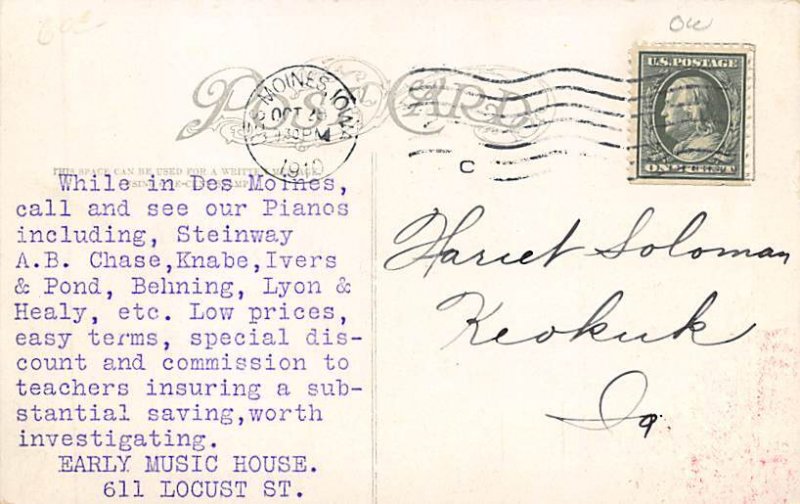 POST CARD
DES MOINES, IOWA
OCT
30 PM
1910
U.S. POSTAGE
ONE CENT
C
THIS SPACE CAN BE USED FOR A WRITTEN MESSAGE
While in Des Moines,
call and see our Pianos
including, Steinway
A.B. Chase,Knabe,Ivers
& Pond, Behning, Lyon &
Healy, etc. Low prices,
easy terms, special dis-
count and commission to
teachers insuring a sub-
stantial saving,worth
investigating.
EARLY MUSIC HOUSE.
611 LOCUST ST.
Hariet Soloman
Keokuk
Ia